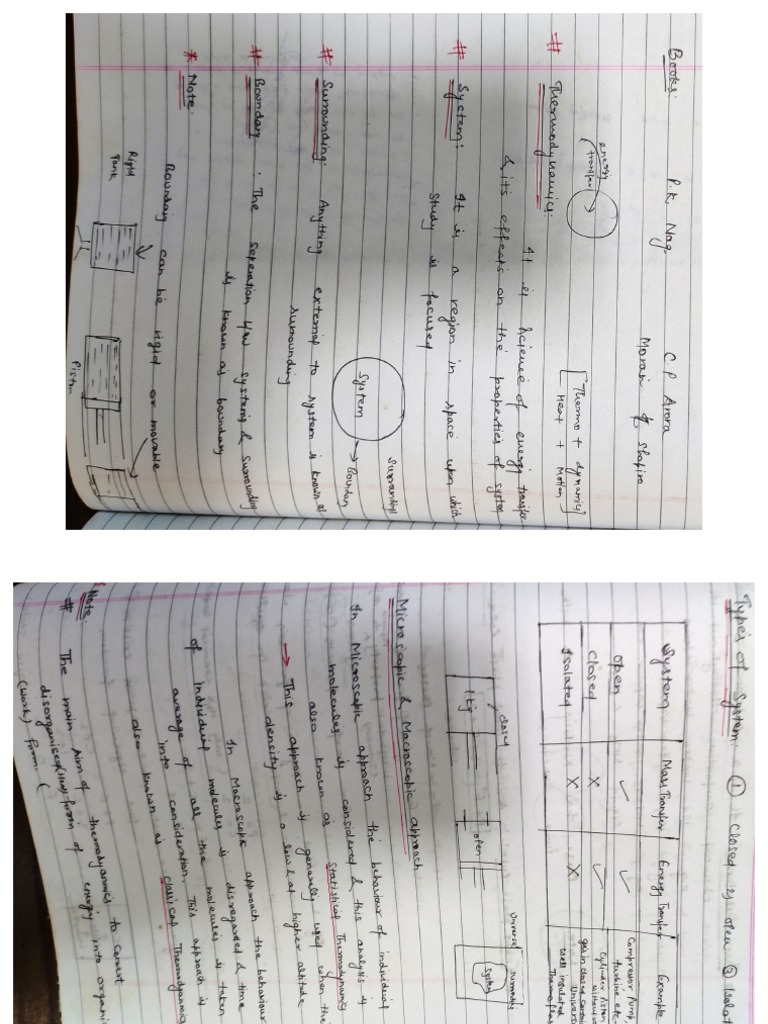 Books: P.K. Nag C P Arora
Moran & Shapiro
energy
transfer
[Thermo + dynamics]
Heat + Motion
# Thermodynamics: It is science of energy transfer
& its effects on the properties of system
# System: It is a region in space upon which
study is focused
System
Surrounding
Boundary
# Surrounding: Anything external to system is known as
surrounding
# Boundary: The seperation b/w systems & surrounding
is known as boundary
* Note:
Boundary can be rigid or movable
Rigid
Tank
Piston
Types of System: ① Closed ② open ③ Isolat
System Mass Transfer Energy Transfer Example
open ✓ ✓ Compressor Pump,
turbine etc
closed X ✓ Cylinder Piston
without
gas in closed
Isolated X X Universe
well insulated
Thermoflas
closed
1 kg
open
Universe
Surrounding
System
Microscopic & Macroscopic approach
In Microscopic approach the behaviour of individual
molecules is considered & this analysis is
also known as Statistical Thermodynamics
→ This approach is generally used when the
density is low & at higher altitude
In Macroscopic approach the behaviour
of individual molecules is disregarded & time
average of all the molecules is taken
into consideration. This approach is
also known as classical Thermodynamics
Note:
# The main aim of thermodyanmics to convert
disorganised (Heat) form of energy into organis
(work) form. (